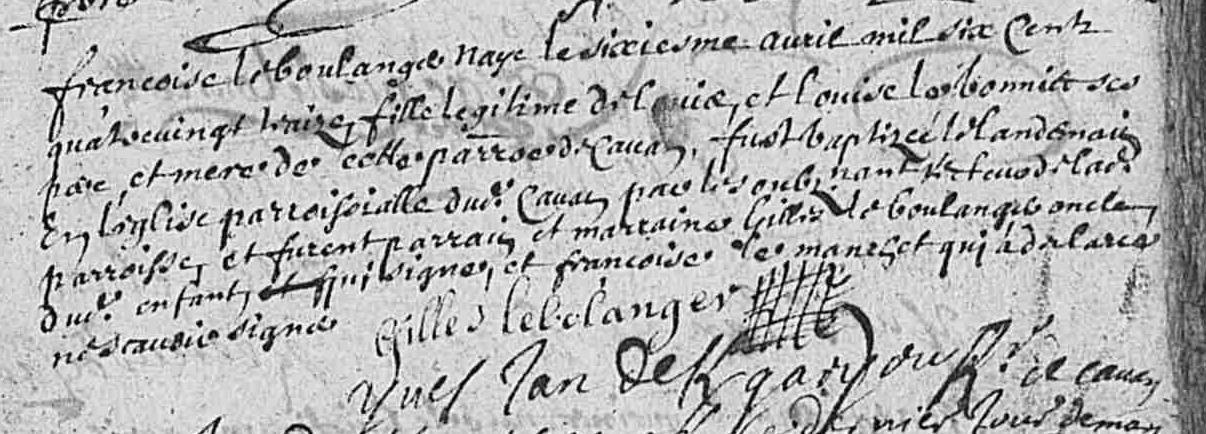 francoise le boulanger naye le sixiesme auril mil six cent
quatrevingt traize, fille legitime de louis, et louise le bonniec ses
pere, et mere de cette parroe de Cauan, fust baptizée le landemain
En leglise parroissialle dud. Cauan par le soubzignant Recteur de lad.
parroisse, et furent parrain et marraine Gilles le boulanger oncle
dud. enfant, qui signe, et francoise le manet qui a declaré
ne scauoir signer
Gilles lebolanger
Yues Jan de Kgariou Rr de Cauan
dernier Jour de